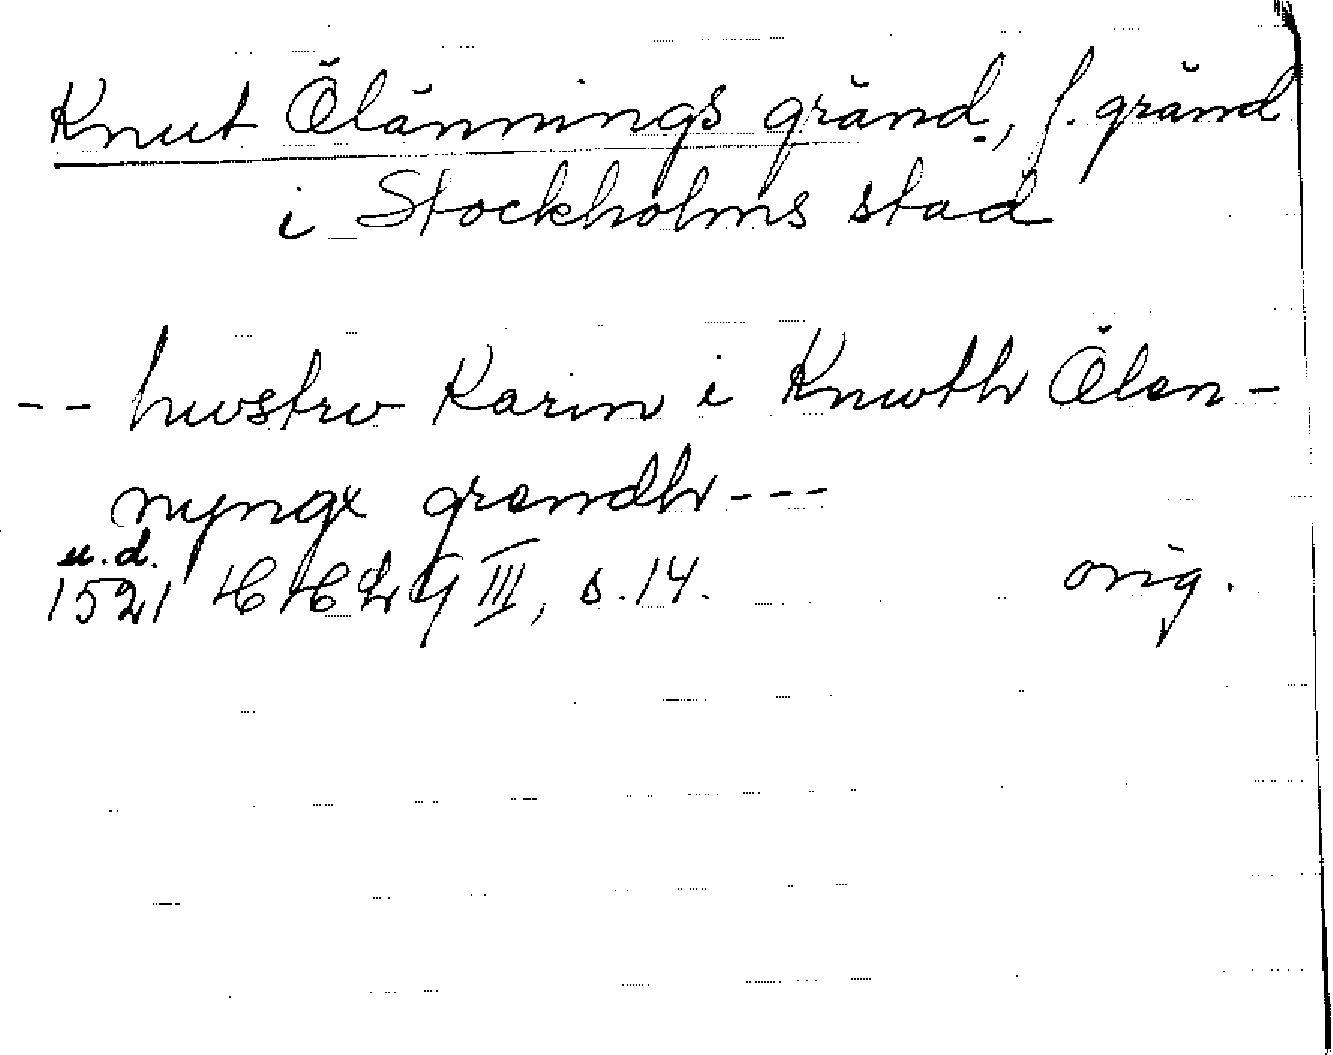 Knut Ölännings gränd, f. gränd
i Stockholms stad
-- hwstrw Karin i Knwth Ölen-
nyngx grendh ---
u.d.
1521 HH Lg III, s. 14. orig.